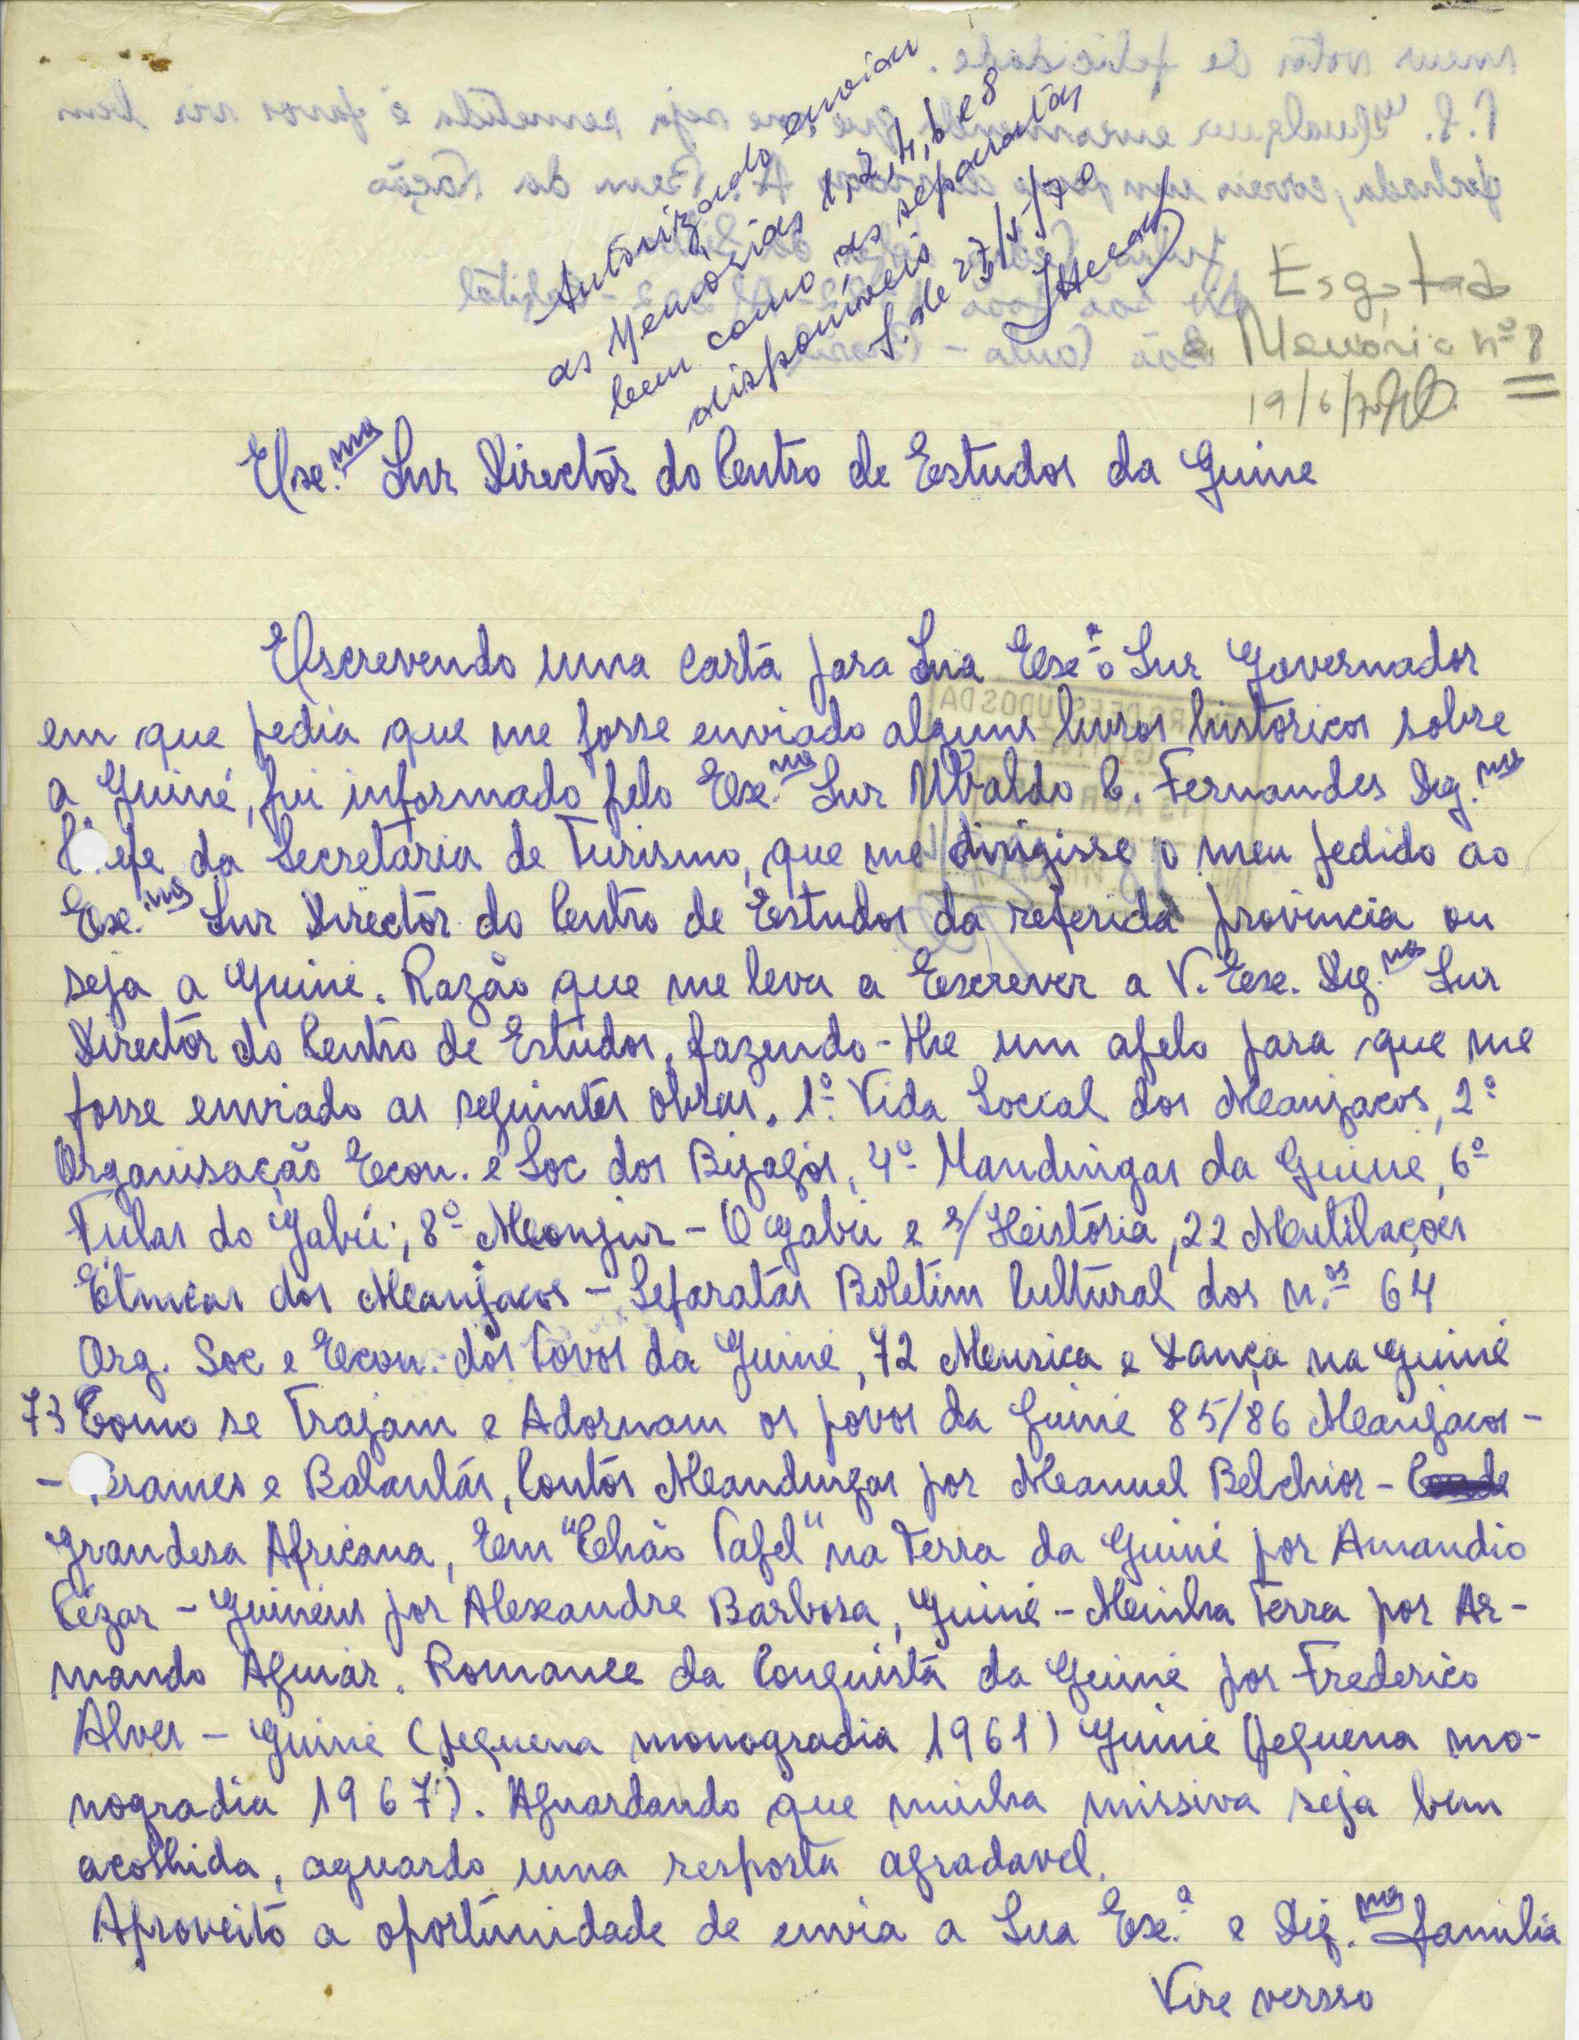 Autorizado enviar
as Memórias 1, 2, 4, 6 e 8
bem como as separatas
disponíveis
S. de 27/5/70
Esgotado
a Memória nº 8
19/6/70
Exe.mo Snr Directôr do Centro de Estudos da Guine
Escrevendo uma carta para Sua Exe.ª o Snr Governador
em que pedia que me fosse enviado alguns livros historicos sobre
a Guiné, fui informado pelo Exe.mo Snr Ubaldo C. Fernandes Dig.mo
efe da Secretaria de Turismo, que me dirigisse o meu pedido ao
Exe.mo Snr Directôr do Centro de Estudos da referida provincia ou
seja a Guiné. Razão que me leva a Escrever a V. Exe. Dig.mo Snr
Directôr do Centro de Estudos, fazendo-lhe um apelo para que me
fosse enviado as seguintes obras. 1º Vida Social dos Manjacos, 2º
Organisação Econ. e Soc dos Bijagós, 4º Mandingas da Guiné, 6º
Fulas do Gabú; 8º Monjur - O Gabú e s/ História, 22 Mutilações
Étnicas dos Manjacos - Separatás Boletim Cultural dos n.os 64
Org. Soc e Econ. dos Povos da Guiné, 72 Musica e Dança na Guiné
73 Como se Trajam e Adornam os povos da Guiné 85/86 Manjacos -
- rames e Balantás, Contos Mandingas por Manuel Belchior -
Grandesa Africana, Em "Chão Papel" na Terra da Guiné por Amandio
Cézar - Guinéus por Alexandre Barbosa, Guiné - Minha Terra por Ar-
mando Aguiar. Romance da Conquistá da Guiné por Frederico
Alves - Guiné (pequena monogradia 1961) Guiné (pequena mo-
nogradia 1967). Aguardando que minha missiva seja bem
acolhida, aguardo uma resposta agradavel.
Aproveitó a oportunidade de envia a Sua Exe.ª e Dig.ma familia
Vire versso